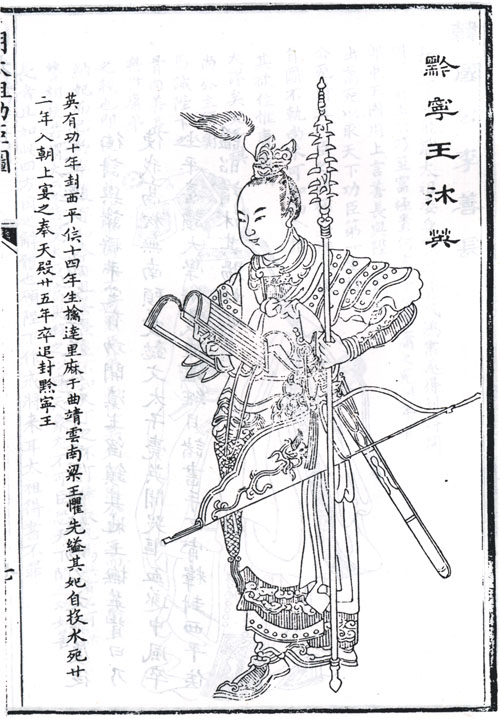 黔寧王沐英
英有功十年封西平信十四年生擒達里麻于曲靖雲南梁王懼先縊其妃自投水死廿
二年入朝上宴之奉天殿廿五年卒追封黔寧王
明太祖功臣圖